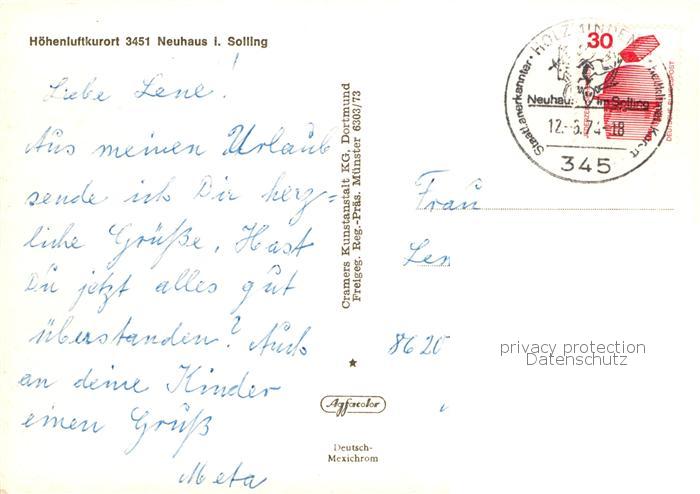 Höhenluftkurort 3451 Neuhaus i. Solling
Liebe Lene!
Aus meinen Urlaub
sende ich Dir herz=
liche Grüße. Hast
Du jetzt alles gut
überstanden? Auch
an deine Kinder
einen Gruß
Meta
Cramers Kunstanstalt KG. Dortmund
Freigeg. Reg.-Präs. Münster 6303/73
Agfacolor
Deutsch-
Mexichrom
30
DEUTSCHE BUNDESPOST
HOLZMINDEN
Staatl. anerkannter
Neuhaus im Solling
345
Frau
Len
8620
privacy protection
Datenschutz